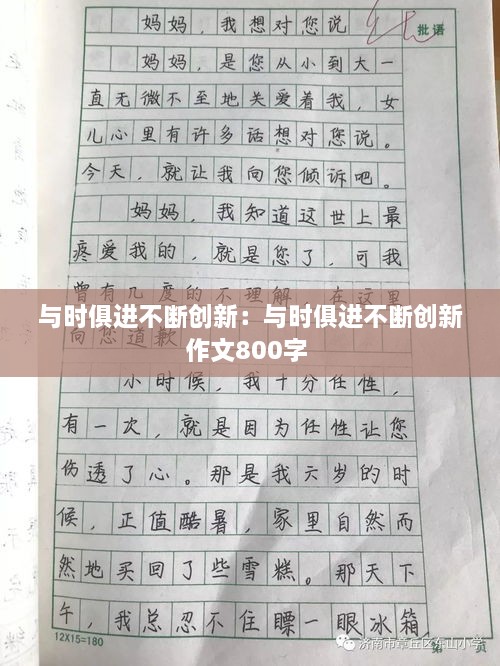 妈妈，我想对您说
批语
妈妈，是您从小到大一
直无微不至地关爱着我，女
儿心里有许多话想对您说。
今天，就让我向您倾诉吧。
妈妈，我知道这世上最
疼爱我的，就是您了，可我
曾有几度的不理解，在这里
与时俱进不断创新：与时俱进不断创新
向您道歉
作文800字
小时候，我十分任性，
有一次，就是因为任性让您
伤透了心。那是我六岁的时
候，正值酷暑，家里自然而
然地买回了些雪糕。那天下
午，我总忍不住瞟一眼冰箱
12X15=180
济南市章丘区东山小学
第 页